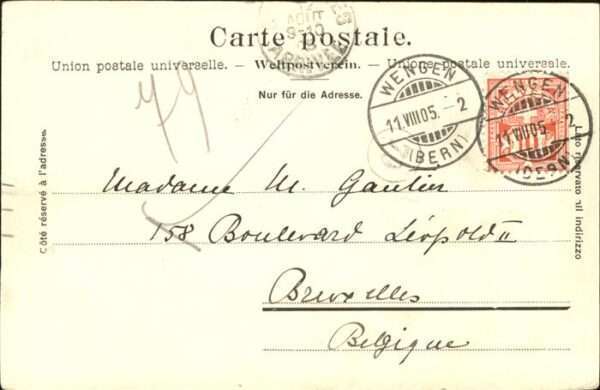 AOUT
9-10
ARRIVÉE
Carte postale.
Union postale universelle. – Weltpostverein. – Unione postale universale.
Nur für die Adresse.
79
WENGEN
11.VIII.05. - 2
(BERN)
WENGEN
11.VIII.05. - 2
(BERN)
Côté réservé à l'adresse.
Lato riservato all indirizzo
Madame M. Gautier
158 Boulevard Léopold II
Bruxelles
Belgique